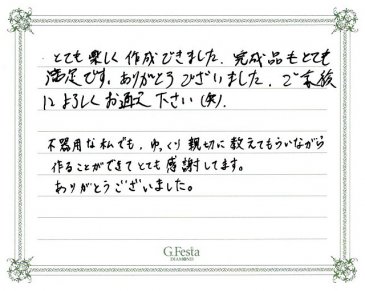 とても楽しく作成できました。完成品もとても
満足です。ありがとうございました。ご家族
によろしくお伝え下さい(矢).
不器用な私でも、ゆっくり親切に教えてもらいながら
作ることができてとても感謝してます。
ありがとうございました。
G.Festa
DIAMOND